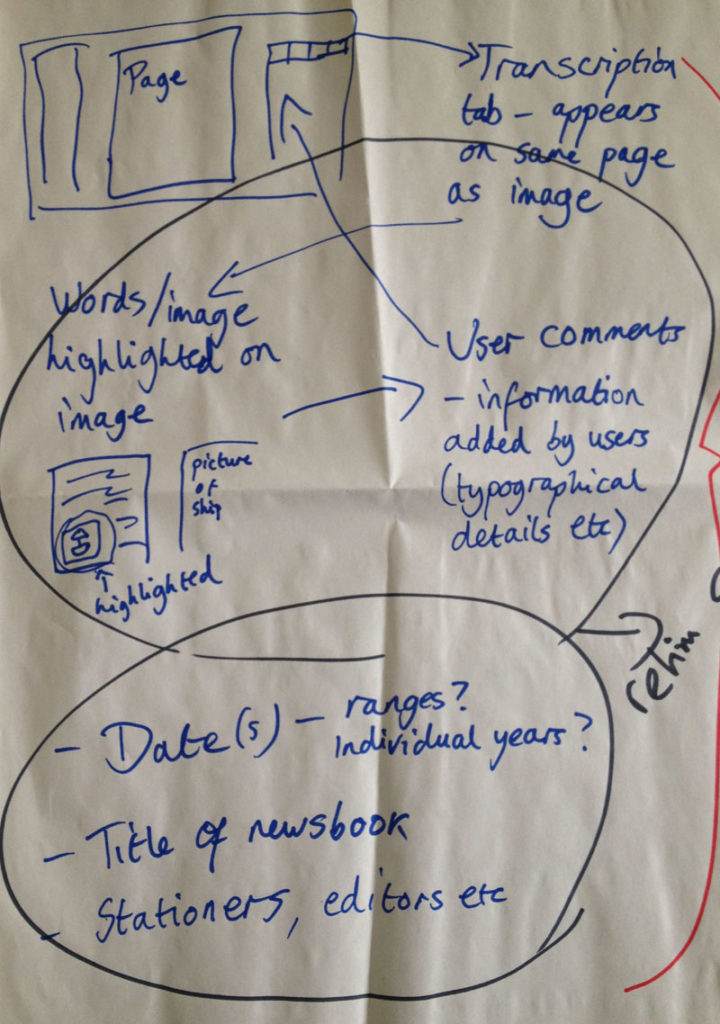 Page
Transcription
tab – appears
on same page
as image
Words/image
highlighted on
image
User comments
– information
added by users
(typographical
details etc)
picture
of
ship
highlighted
– Date(s) – ranges?
Individual years?
– Title of newsbook
– Stationers, editors etc